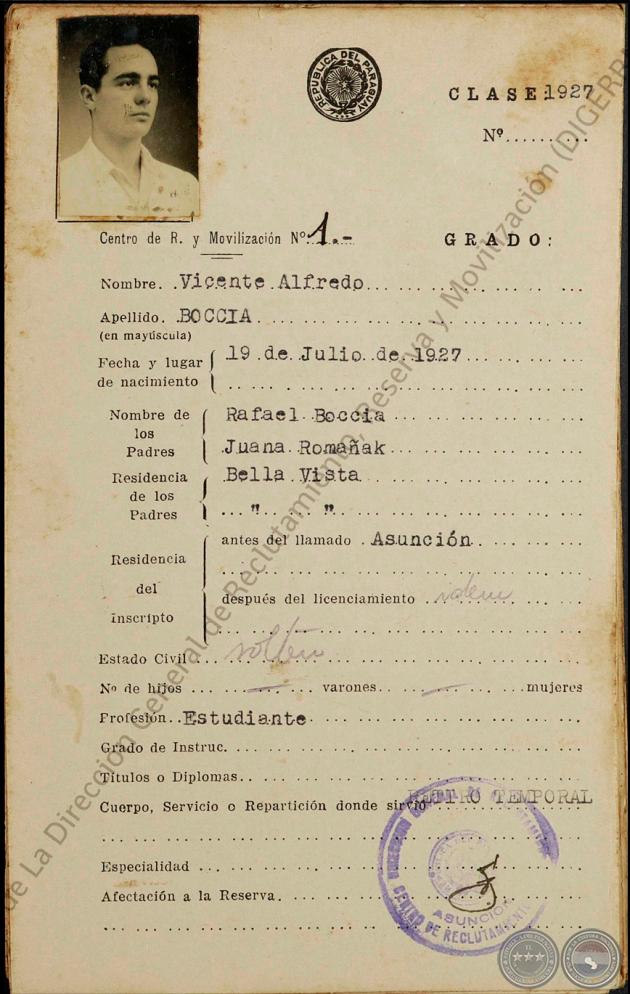 REPUBLICA DEL PARAGUAY
CLASE:1927
Nº..........
Centro de R. y Movilización Nº 1.-
GRADO:
Nombre. .Vicente Alfredo
Apellido. BOCCIA
(en mayúscula)
Fecha y lugar de nacimiento
19 de Julio de 1927
Nombre de los Padres
Rafael Boccia
Juana Romañak
Residencia de los Padres
Bella Vista
" "
Residencia del Inscripto
antes del llamado . Asunción
después del licenciamiento idem
Estado Civil
Nº de hijos ... — ... varones ... — ... mujeres
Profesión. .Estudiante
Grado de Instruc.
Títulos o Diplomas.
Cuerpo, Servicio o Repartición donde sirvió RETIRO TEMPORAL
Especialidad
Afectación a la Reserva.
DIRECCION GENERAL DE
ASUNCION
CENTRO DE RECLUTAMIENTO
de La Dirección General de Reclutamiento, Reserva y Movilización (DIGERR